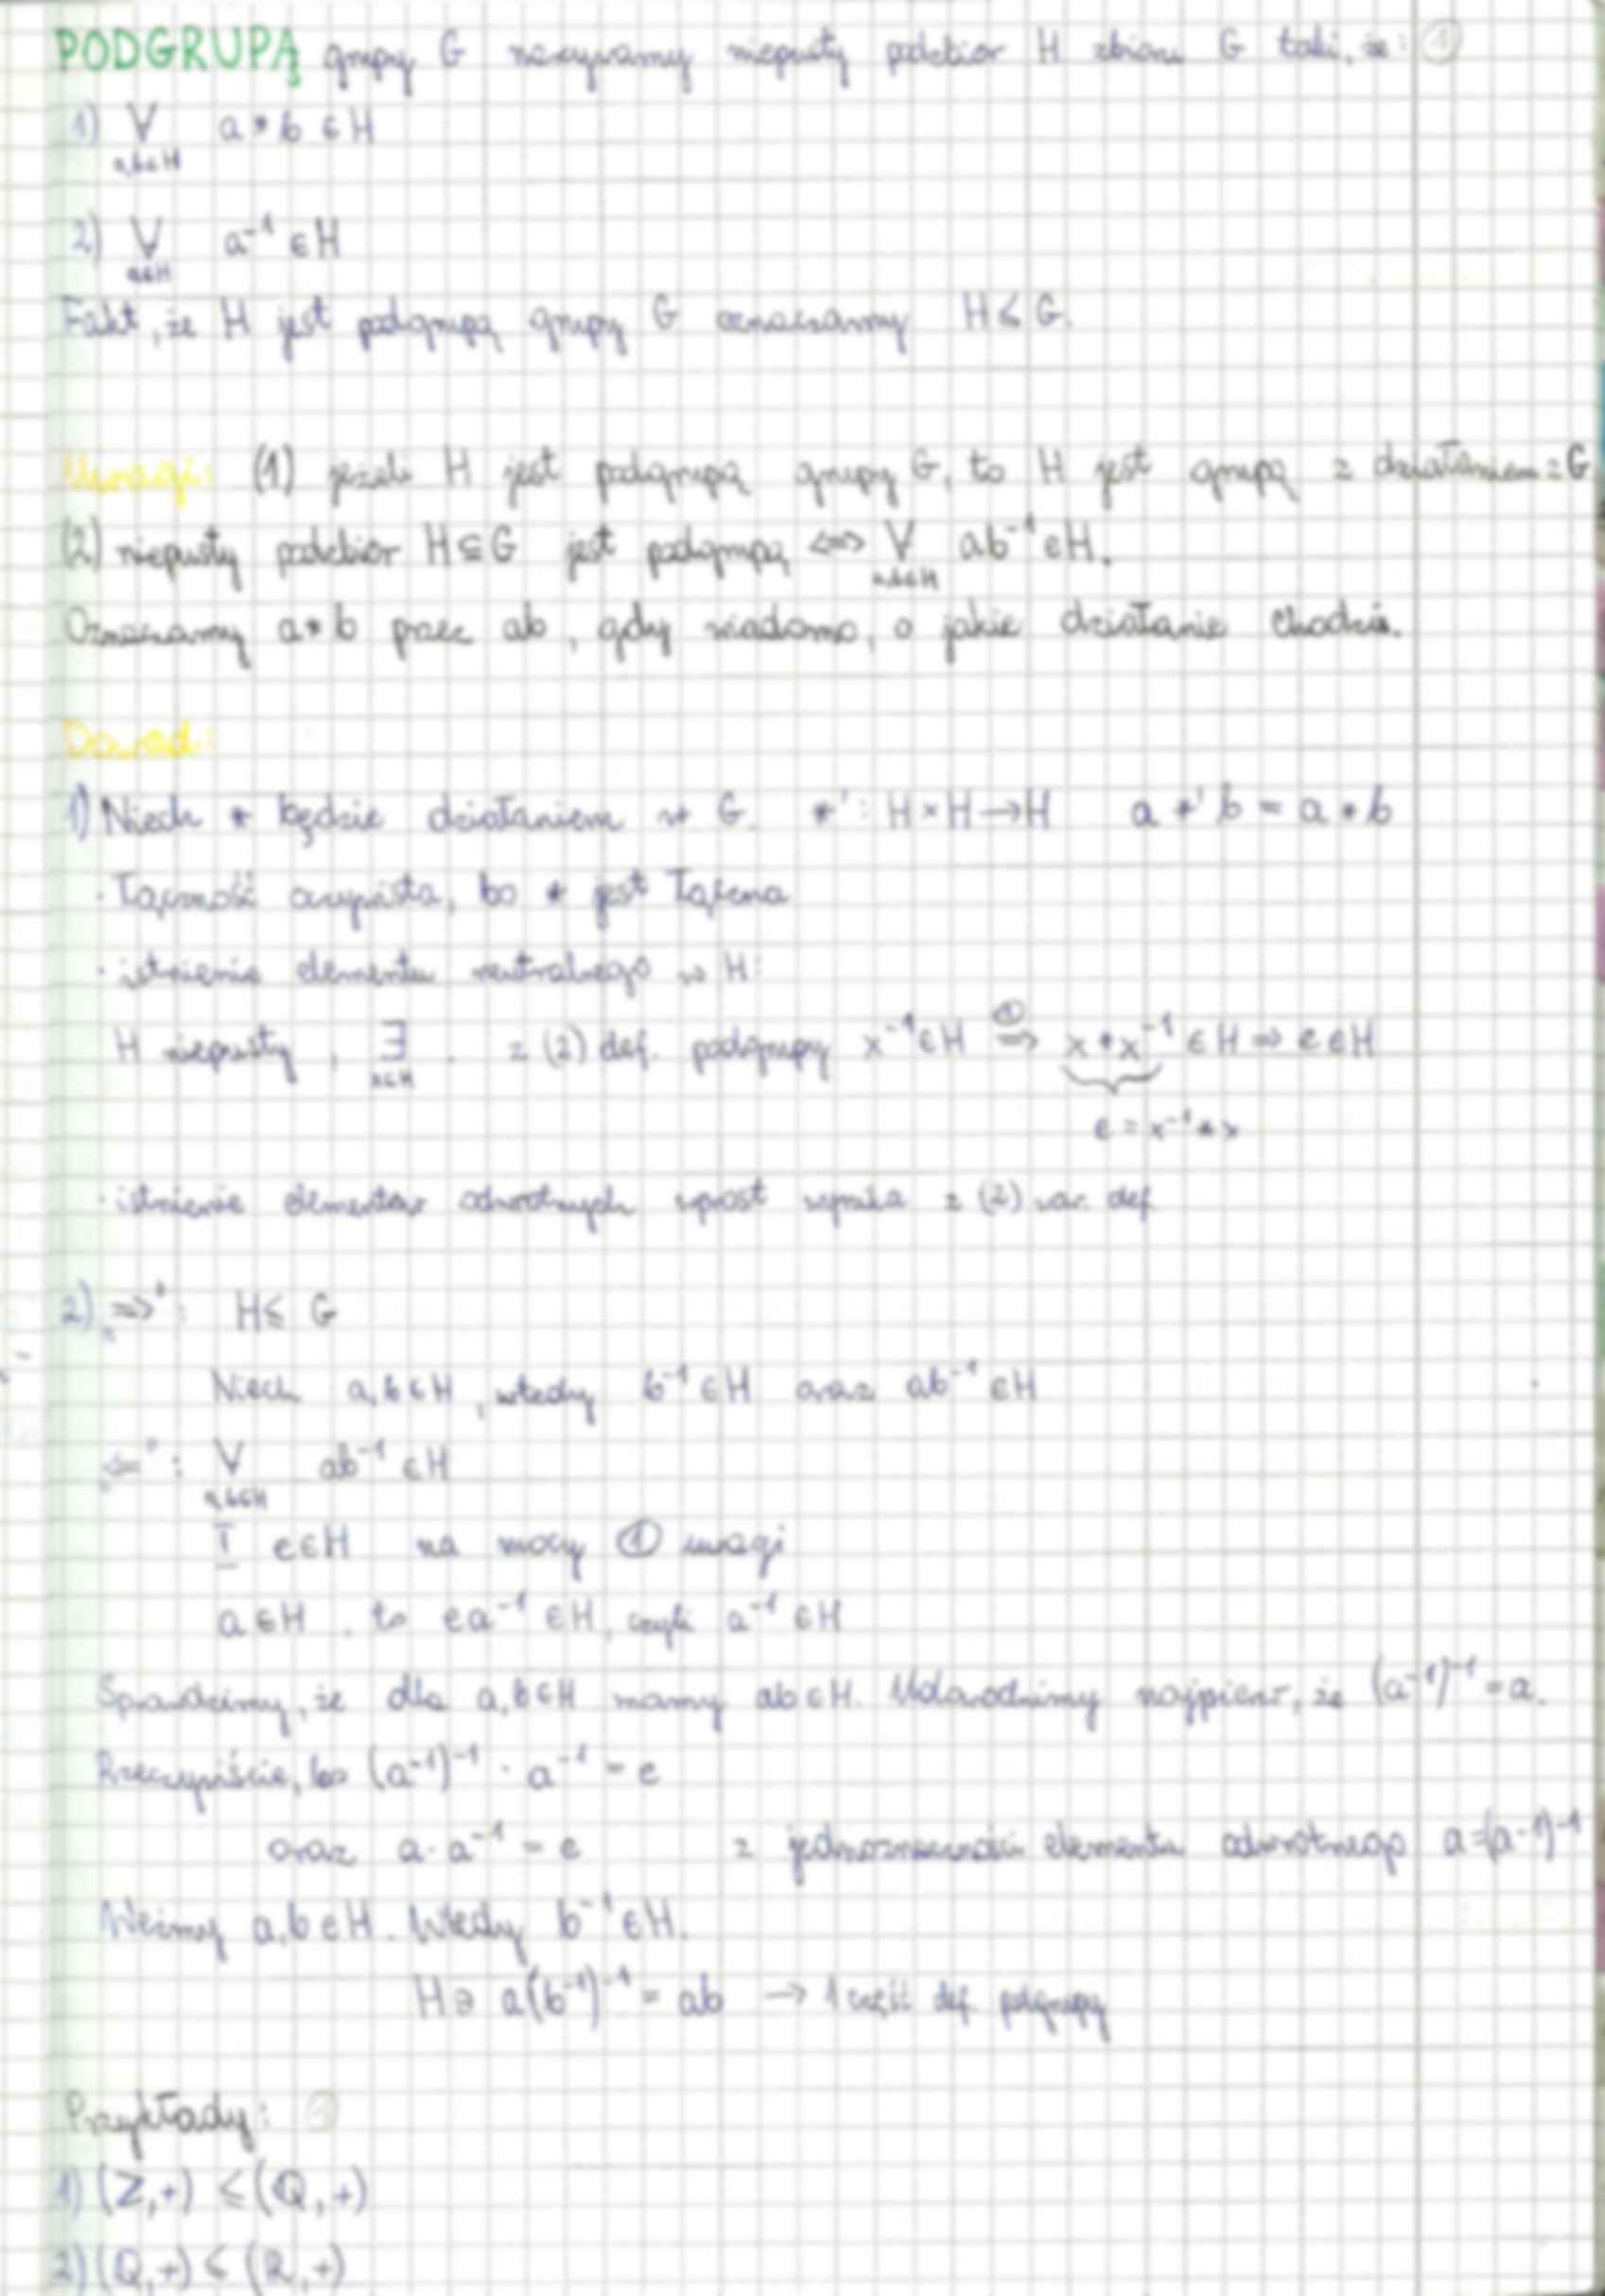 PODGRUPĄ grupy G nazywamy niepusty podzbiór H zbioru G taki, że: ①
1) ∀ a * b ∈ H
a,b∈H
2) ∀ a⁻¹ ∈ H
a∈H
Fakt, że H jest podgrupą grupy G oznaczamy H ≤ G.
Uwagi: (1) jeżeli H jest podgrupą grupy G, to H jest grupą z działaniem z G
(2) niepusty podzbiór H ⊆ G jest podgrupą ⟺ ∀ ab⁻¹ ∈ H.
a,b∈H
Oznaczamy a * b przez ab, gdy wiadomo, o jakie działanie chodzi.
Dowód:
1) Niech * będzie działaniem w G. *' : H × H → H a *' b = a * b
· Łączność oczywista, bo * jest łączna
· istnienie elementu neutralnego w H:
H niepusty, ∃ . z (2) def. podgrupy x⁻¹ ∈ H ①⟹ x * x⁻¹ ∈ H ⟹ e ∈ H
x∈H
e = x⁻¹ * x
· istnienie elementów odwrotnych wprost wynika z (2) war. def.
2) „⟹": H ≤ G
Niech a, b ∈ H, wtedy b⁻¹ ∈ H oraz ab⁻¹ ∈ H
„⟸": ∀ ab⁻¹ ∈ H
a,b∈H
I e ∈ H na mocy ① uwagi
a ∈ H, to ea⁻¹ ∈ H, czyli a⁻¹ ∈ H
Sprawdzimy, że dla a, b ∈ H mamy ab ∈ H. Udowodnimy najpierw, że (a⁻¹)⁻¹ = a.
Rzeczywiście, bo (a⁻¹)⁻¹ · a⁻¹ = e
oraz a · a⁻¹ = e z jednoznaczności elementu odwrotnego a = (a⁻¹)⁻¹
Weźmy a, b ∈ H. Wtedy b⁻¹ ∈ H.
H ∋ a(b⁻¹)⁻¹ = ab → 1 część def. podgrupy
Przykłady:
1) (Z, +) ≤ (Q, +)
2) (Q, +) ≤ (R, +)